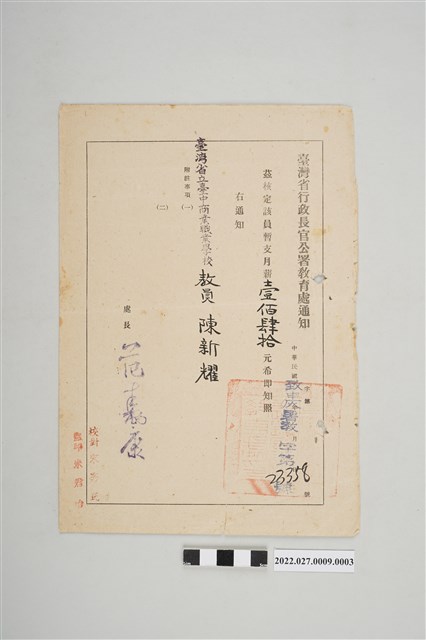 臺灣省行政長官公署教育處通知
中華民國
致未灰署教
字第
23358
號
茲核定該員暫支月薪壹佰肆拾元希即知照
右通知
臺灣省立臺中商業職業學校 教員 陳新耀
附註事項
(一)
(二)
處長 范壽康
校對
監印
2022.027.0009.0003